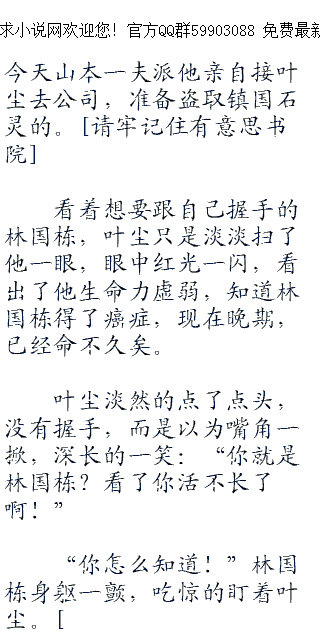 求小说网欢迎您! 官方QQ群59903088 免费最新
今天山本一夫派他亲自接叶
尘去公司，准备盗取镇国石
灵的。[请牢记住有意思书
院]
看着想要跟自己握手的
林国栋，叶尘只是淡淡扫了
他一眼，眼中红光一闪，看
出了他生命力虚弱，知道林
国栋得了癌症，现在晚期，
已经命不久矣。
叶尘淡然的点了点头，
没有握手，而是以为嘴角一
掀，深长的一笑：“你就是
林国栋？看了你活不长了
啊！”
“你怎么知道！”林国
栋身躯一颤，吃惊的盯着叶
尘。[